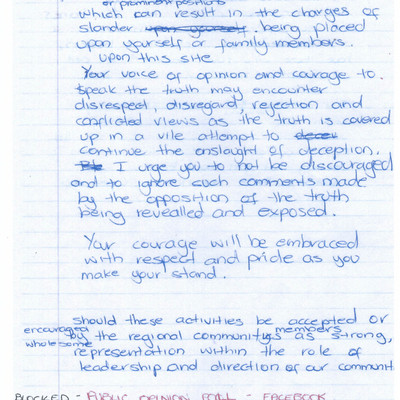 or prominent positions
which can result in the charges of
slander upon yourself. being placed
upon yourself or family members.
upon this site
Your voice of opinion and courage to.
speak the truth may encounter
disrespect, disregard, rejection and
conflicted views as the truth is covered
up in a vile attempt to
continue the onslaught of deception.
I urge you to not be discouraged
and to ignore such comments made
by the opposition of the truth
being revealled and exposed.
Your courage will be embraced
with respect and pride as you
make your stand.
should these activities be accepted or
encouraged by the regional community members as strong,
wholesome representation within the role of
leadership and direction of our communit
BLOCKED - PUBLIC OPINION POLL - FACEBOOK